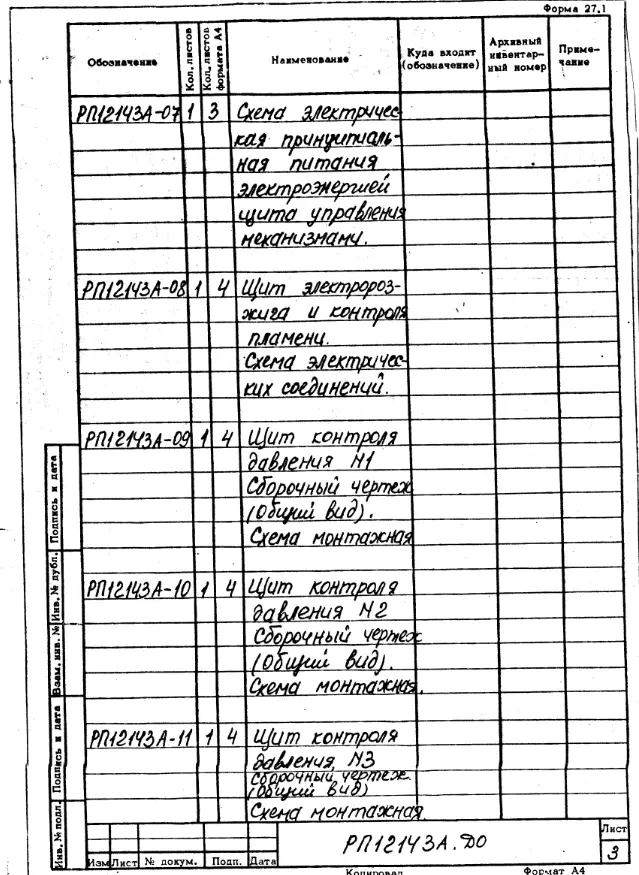 Форма 27.1
Обозначение Кол. листов Кол. листов формата А4 Наименование Куда входит (обозначение) Архивный инвентарный номер Примечание
РП12143А-07 1 3 Схема электричес-
кая принципиаль-
ная питания
электроэнергией
щита управления
механизмами.
РП12143А-08 1 4 Щит электророз-
жига и контроля
пламени.
Схема электричес-
ких соединений.
РП12143А-09 1 4 Щит контроля
давления N1
Сборочный чертеж
(Общий вид).
Схема монтажная
РП12143А-10 1 4 Щит контроля
давления N2
Сборочный чертеж
(Общий вид).
Схема монтажная.
РП12143А-11 1 4 Щит контроля
давления N3
Сборочный чертеж
(Общий вид)
Схема монтажная.
Инв. № подл. Подпись и дата Взам. инв. № Инв. № дубл. Подпись и дата
Изм Лист № докум. Подп. Дата
РП12143А.ДО
Лист
3
Копировал Формат А4